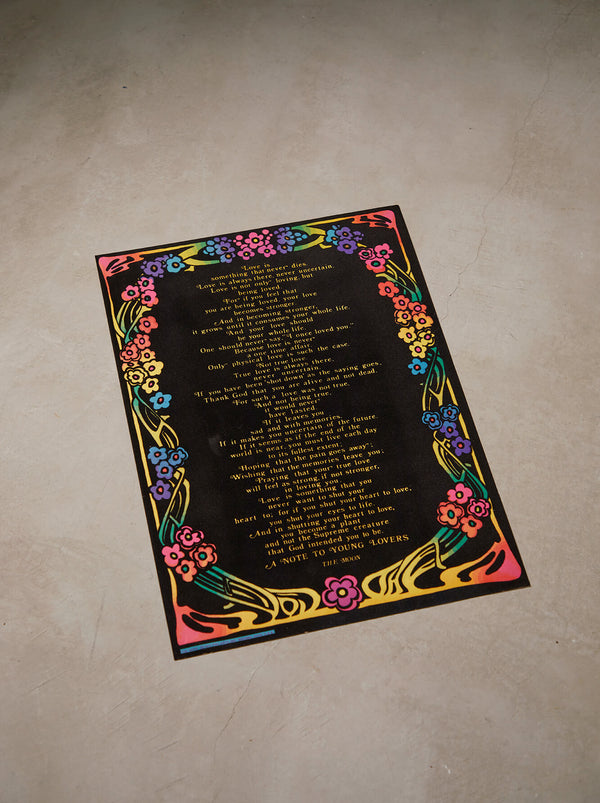 Love is
something that never dies.
Love is always there never uncertain.
Love is not only loving, but
being loved
For if you feel that
you are being loved, your love
becomes stronger.
And in becoming stronger,
it grows until it consumes your whole life.
And your love should
be your whole life.
One should never say, "I once loved you."
Because love is never
a one time affair.
Only physical love is such the case.
Not true love.
True love is always there,
never uncertain.
If you have been "shot down" as the saying goes,
Thank God that you are alive and not dead.
For such a love was not true.
And not being true,
it would never
have lasted.
If it leaves you
sad and with memories,
If it makes you uncertain of the future.
If it seems as if the end of the
world is near, you must live each day
to its fullest extent;
Hoping that the pain goes away;
Wishing that the memories leave you;
Praying that your true love
will feel as strong, if not stronger,
in loving you.
Love is something that you
never want to shut your
heart to; for if you shut your heart to love,
you shut your eyes to life.
And in shutting your heart to love,
you become a plant
and not the Supreme creature
that God intended you to be.
A NOTE TO YOUNG LOVERS
THE MOON